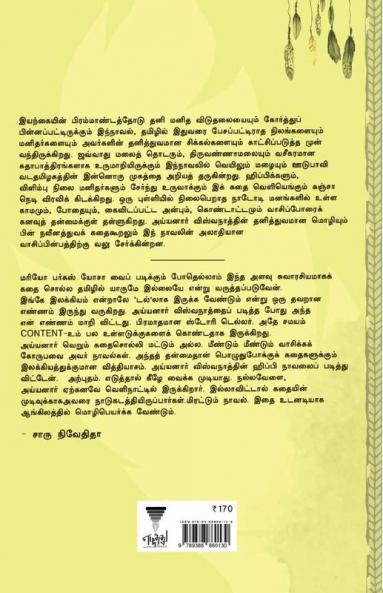 இயற்கையின் பிரம்மாண்டத்தோடு தனி மனித விடுதலையையும் கோர்த்துப்
பின்னப்பட்டிருக்கும் இந்நாவல், தமிழில் இதுவரை பேசப்பட்டிராத நிலங்களையும்
மனிதர்களையும் அவர்களின் தனித்துவமான சிக்கல்களையும் காட்சிப்படுத்த முன்
வந்திருக்கிறது. ஜவ்வாது மலைத் தொடரும், திருவண்ணாமலையும் வசீகரமான
கதாபாத்திரங்களாக உருமாறியிருக்கும் இந்நாவலில் வெயிலும் மழையும் ஊடுபாவி
வடதமிழகத்தின் இன்னொரு முகத்தை அறியத் தருகின்றது. ஹிப்பிக்களும்,
விளிம்பு நிலை மனிதர்களும் சேர்ந்து உருவாக்கும் இக் கதை வெளியெங்கும் கஞ்சா
நெடி விரவிக் கிடக்கிறது. ஒரு புள்ளியில் நிலைபெறாத நாடோடி மனங்களில் உள்ள
காமமும், போதையும், கைவிடப்பட்ட அன்பும், கொண்டாட்டமும் வாசிப்போரைக்
கனவுத் தன்மைக்குள் தள்ளுகிறது. அய்யனார் விஸ்வநாத்தின் தனித்துவமான மொழியும்
பின் நவீனத்துவக் கதைகூறலும் இந் நாவலின் அலாதியான
வாசிப்பின்பத்திற்கு வலு சேர்க்கின்றன.
மரியோ பர்கஸ் யோசா வைப் படிக்கும் போதெல்லாம் இந்த அளவு சுவாரசியமாகக்
கதை சொல்ல தமிழில் யாருமே இல்லையே என்று வருத்தப்படுவேன்.
இங்கே இலக்கியம் என்றாலே 'டல்'லாக இருக்க வேண்டும் என்று ஒரு தவறான
எண்ணம் இருந்து வருகிறது. அய்யனார் விஸ்வநாத்தைப் படித்த போது அந்த
என் எண்ணம் மாறி விட்டது. பிரமாதமான ஸ்டோரி டெல்லர். அதே சமயம்
CONTENT-உம் பல உள்ளடுக்குகளைக் கொண்டதாக இருக்கிறது.
அய்யனார் வெறும் கதைசொல்லி மட்டும் அல்ல. மீண்டும் மீண்டும் வாசிக்கக்
கோருபவை அவர் நாவல்கள். அந்தத் தன்மைதான் பொழுதுபோக்குக் கதைகளுக்கும்
இலக்கியத்துக்குமான வித்தியாசம். அய்யனார் விஸ்வநாத்தின் ஹிப்பி நாவலைப் படித்து
விட்டேன். அற்புதம். எடுத்தால் கீழே வைக்க முடியாது. நல்லவேளை,
அய்யனார் ஏற்கனவே வெளிநாட்டில் இருக்கிறார். இல்லாவிட்டால் கதையின்
முடிவுக்காகஅவரை நாடுகடத்தியிருப்பார்கள்.மிரட்டும் நாவல். இதை உடனடியாக
ஆங்கிலத்தில் மொழிபெயர்க்க வேண்டும்.
- சாரு நிவேதிதா
₹ 170
எழுத்து